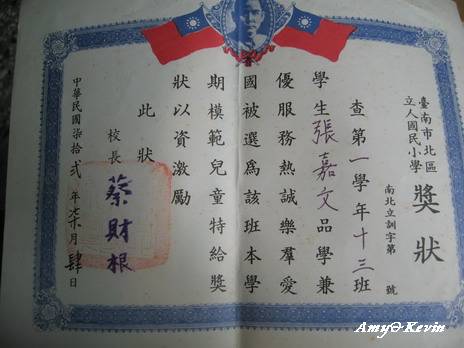 獎狀
臺南市北區
立人國民小學
南北立訓字第　號
查第一學年十三班
學生張嘉文品學兼
優服務熱誠樂羣愛
國被選為該班本學
期模範兒童特給獎
狀以資激勵
此狀
校長 蔡財根
中華民國柒拾貳年柒月肆日
Amy∂Kevin